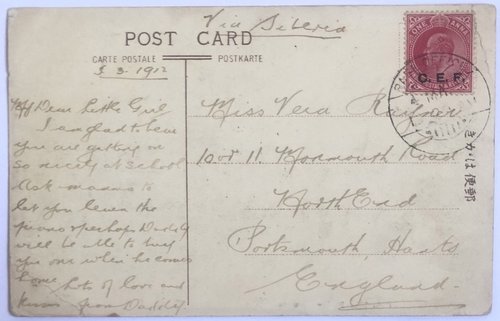 Via Siberia
POST CARD
CARTE POSTALE
POSTKARTE
5.3.1912
My Dear Little Girl
I am glad to hear
you are getting on
so nicely at school
Ask mamma to
let you learn the
piano & perhaps Daddy
will be able to buy
you one when he comes
home lots of love and
kisses from Daddy.
ONE ANNA
C.E.F.
Miss Vera
10 or 11 Monmouth Road
North End
Portsmouth, Hants
England
きかは便郵